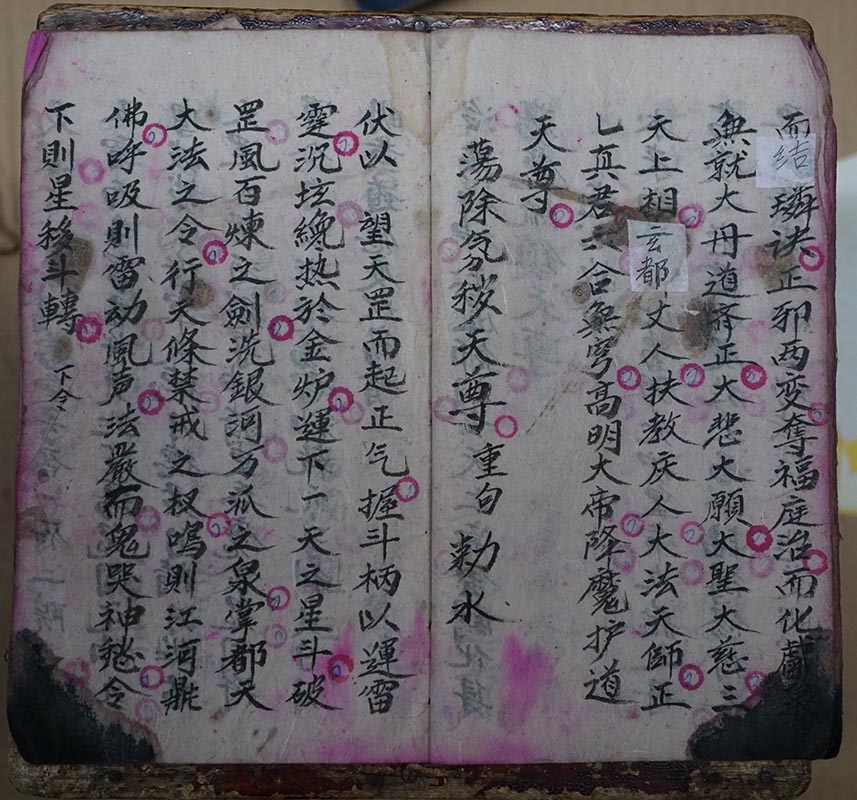 而結璘诀正邪两变奪福庭治而化獻
無就大丹道齐正大悲大願大聖大慈三
天上相玄都丈人扶教庆人大法天師正
乚真君六合無穹高明大帝降魔护道
天尊
蕩除氛秽天尊重白勅水
伏以望天罡而起正气握斗柄以運雷
霆沉坛纔热於金炉運下一天之星斗破
罡风百煉之劍洗銀河万派之泉掌都天
大法之令行天條禁戒之权鳴則江河鼎
佛呼吸則雷动風声法嚴而鬼哭神愁令
下則星移斗轉下令